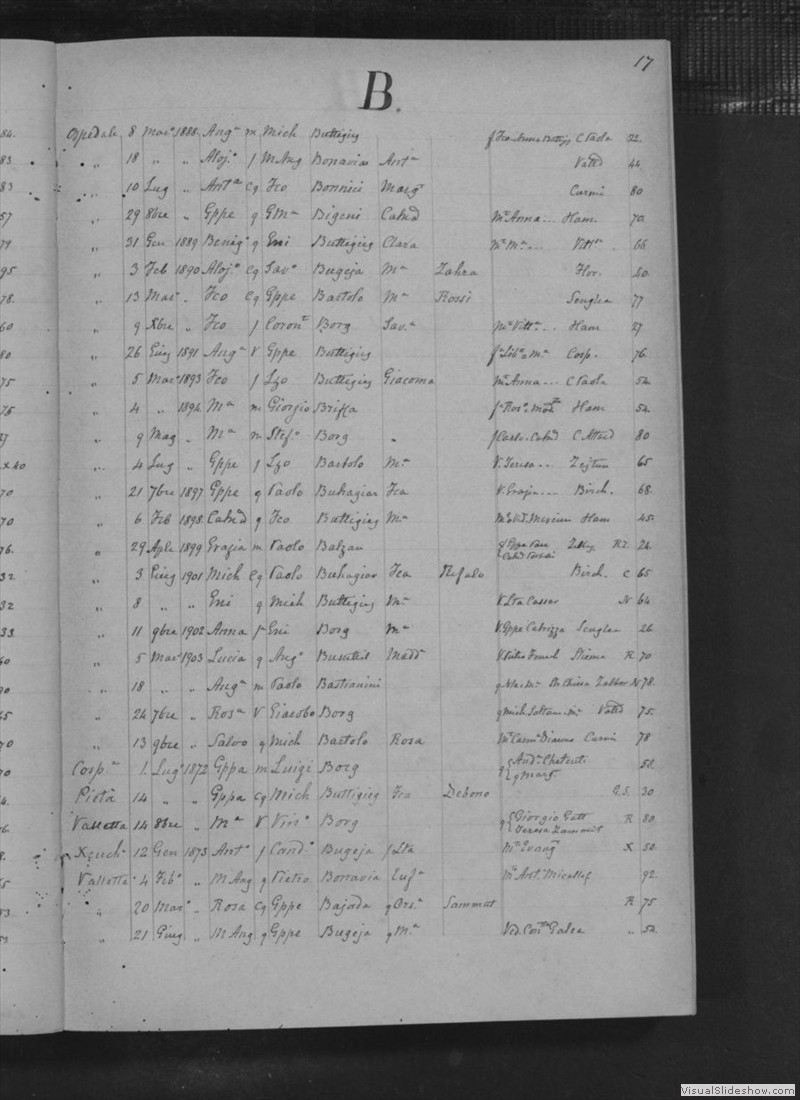 17
B.
84. Ospedale 8 Mar° 1888 Ang.a m Mich Buttigieg f Fca Anna Buttigg C Paola 22.
83 " 18 " " Aloj.a f M Ang Bonavia Ant.a Vatta 44
83 " 10 Lug " Ant.a Cg Fco Bonnici Marg.t Curmi 80
57 " 29 8bre " Gppe g G M.a Bigeni Catn'd M.e Anna... Ham. 70
79 " 31 Gen 1889 Benig.o g Eni Buttigieg Clara M.e M.a... Vitt.sa 66
95 " 3 Feb 1890 Aloj.o Cg Sav.o Bugeja M.a Zahra Flor. 60
78. " 13 Mar° " Fco Cg Gppe Bartolo M.a Rossi Senglea 77
60 " 9 Xbre " Fco f Coron.to Borg Sav.a M.e Vitt.a... Ham 27
80 " 26 Giug 1891 Ang.a V Gppe Buttigieg Cosp. 76.
75 " 5 Mar° 1893 Fco f Lzo Buttigieg Giacoma M.e Anna... C Paola 52
75 " 4 " 1894 M.a m Giorgio Briffa Ham 52.
27 " 9 Mag " M.a m Stef.o Borg " f Carlo. Catn'd C Attard 80
X 40 " 4 Lug " Gppe f Lzo Bartolo M.a V. Teresa... Zejtun 65
70 " 21 7bre 1897 Gppe g Paolo Buhagiar Fca V. Grazia... Birch. 68.
70 " 6 Feb 1898 Catn'd g Fco Buttigieg M.a Ham 45.
76. " 29 Aple 1899 Grazia m Paolo Balzan R.I. 26.
32 " 3 Giug 1901 Mich Cg Paolo Buhagiar Fca Birch. C 65
32 " 8 " " Eni g Mich Buttigieg M.a V Lta Cassar N 64
33 " 11 9bre 1902 Anna f Eni Borg M.a V. Gppe Cabrizza Senglea 26
60 " 5 Mar° 1903 Lucia g Ang.o Busuttil Madd.a Sliema R 70
90 " 18 " " Ang.a m Paolo Bastianini Zabbar N 78.
65 " 24 7bre " Rosa V Giacobo Borg g Mich Sultana M.a Vatta 75.
70 " 13 9bre " Salvo g Mich Bartolo Rosa M.e Carm.a Curmi 78
70 Cosp.a 1. Lug° 1872 Gppa m Luigi Borg 58.
4. Pietà 14 " " Gppa Cg Mich Buttigieg Fca Debono G.S. 30
6. Valletta 14 8bre " M.a V Vin.o Borg g Giorgio Gatt Teresa Zammit R 80
8. Xeuch.a 12 Gen 1873 Ant.o f Cand.o Bugeja f Lta M.e Evang.ta X 50.
5 Valletta 4 Feb° " M Ang g Pietro Bonavia Euf.a M.e Ant. Micallef 92.
53 " 20 Mar° " Rosa Cg Gppe Bajada g Ors.a Sammut R 75
53 " 21 Giug " M Ang g Gppe Bugeja g M.a Ved. Con.ta Galea " 52
VisualSlideshow.com